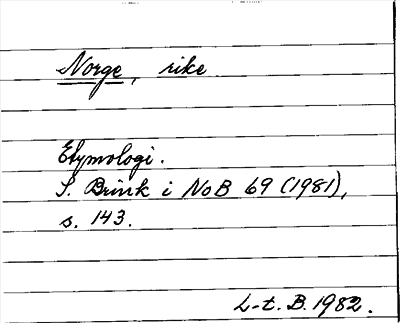 Norge, rike
Etymologi.
S. Brink i NoB 69 (1981),
s. 143.
L-t. B. 1982.